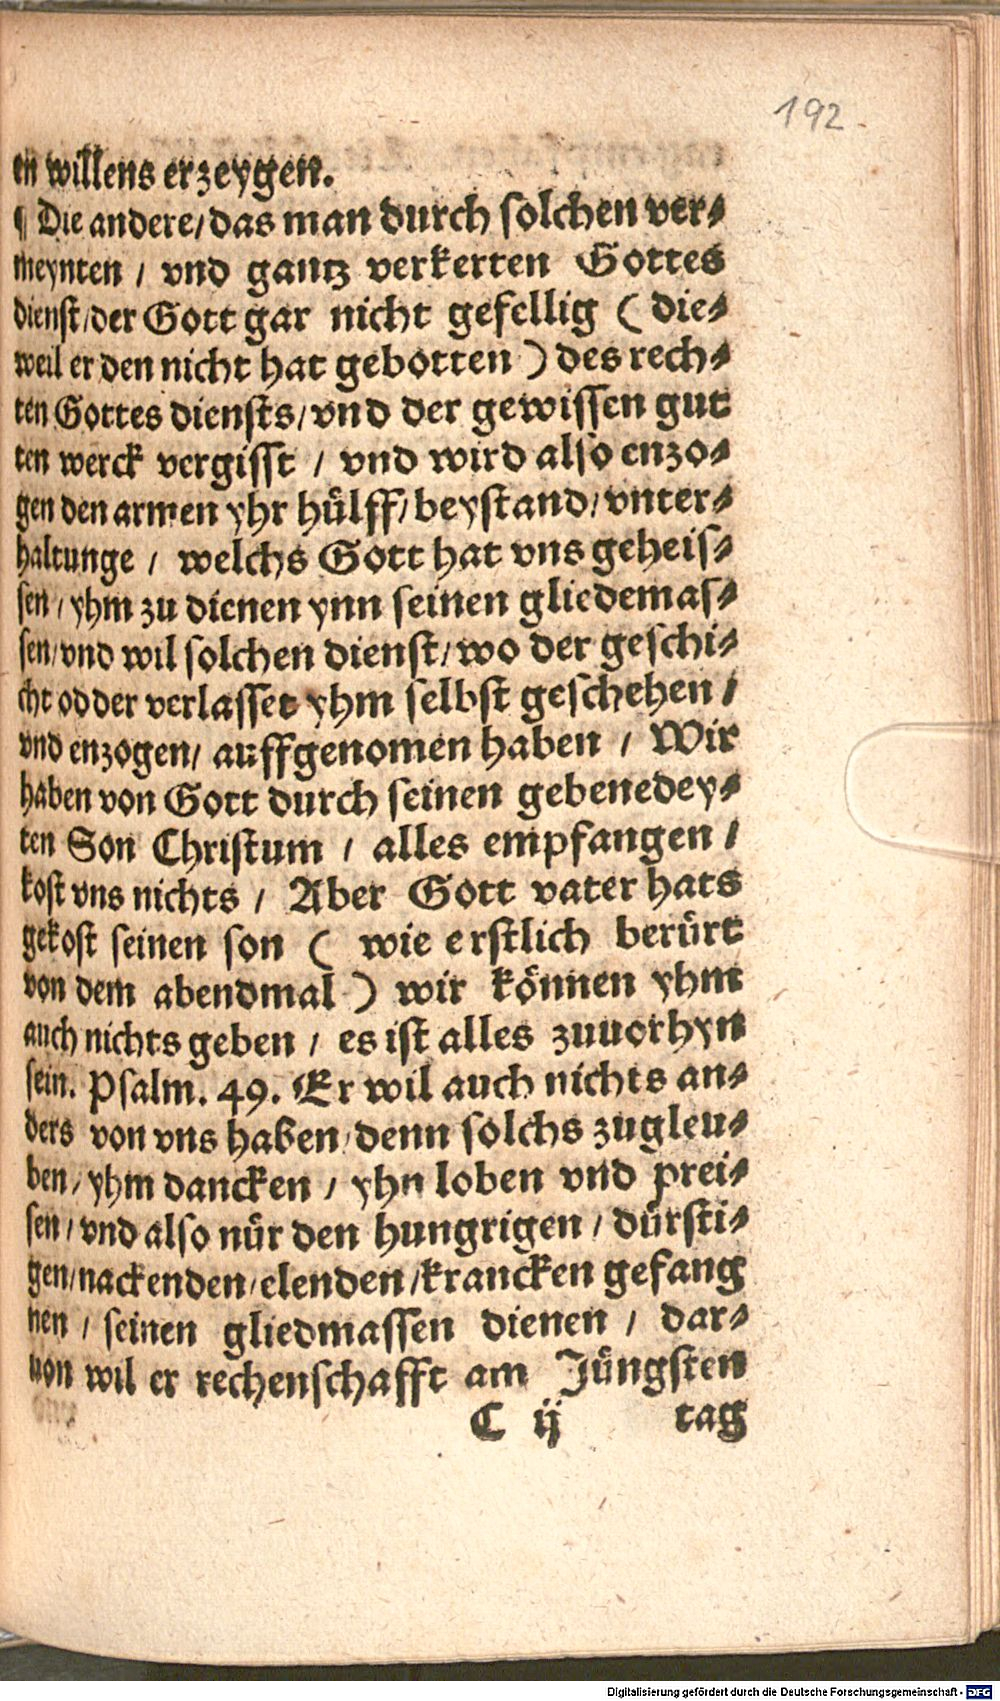 192
en willens erzeygen.
¶ Die andere/ das man durch solchen ver⸗
meynten / vnd gantz verkerten Gottes
dienst/ der Gott gar nicht gefellig ( die⸗
weil er den nicht hat gebotten ) des rech⸗
ten Gottes diensts/ vnd der gewissen gut
ten werck vergisst / vnd wird also enzo⸗
gen den armen yhr hülff/ beystand/ vnter⸗
haltunge / welchs Gott hat vns geheis⸗
sen/ yhm zu dienen ynn seinen gliedemas⸗
sen/ vnd wil solchen dienst/ wo der geschi⸗
cht odder verlasset yhm selbst geschehen /
vnd enzogen/ auffgenomen haben / Wir
haben von Gott durch seinen gebenedey⸗
ten Son Christum / alles empfangen /
kost vns nichts / Aber Gott vater hats
gekost seinen son ( wie erstlich berürt
von dem abendmal ) wir können yhm
auch nichts geben / es ist alles zuuorhyn
sein. Psalm. 49. Er wil auch nichts an⸗
ders von vns haben/ denn solchs zugleu⸗
ben/ yhm dancken / yhn loben vnd prei⸗
sen/ vnd also nür den hungrigen / dürsti⸗
gen/ nackenden/ elenden/ krancken gefang
nen / seinen gliedmassen dienen / dar⸗
uon wil er rechenschafft am Jüngsten
C ij tag
Digitalisierung gefördert durch die Deutsche Forschungsgemeinschaft - DFG